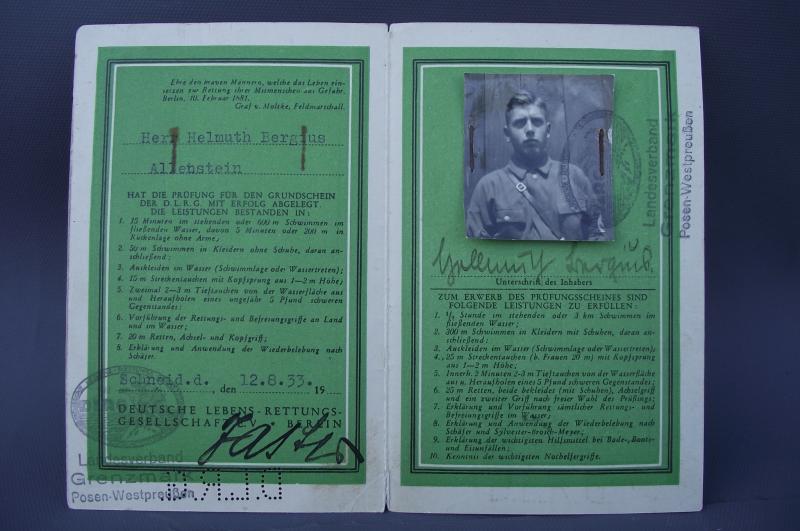 Ehre den braven Männern, welche das Leben ein-
setzen zur Rettung ihrer Mitmenschen aus Gefahr.
Berlin, 10. Februar 1881.
Graf v. Moltke, Feldmarschall.
Herr Helmuth Bergius
Allenstein
HAT DIE PRÜFUNG FÜR DEN GRUNDSCHEIN
DER D.L.R.G. MIT ERFOLG ABGELEGT.
DIE LEISTUNGEN BESTANDEN IN:
1. 15 Minuten im stehenden oder 600 m Schwimmen im
fließenden Wasser, davon 5 Minuten oder 200 m in
Rückenlage ohne Arme;
2. 50 m Schwimmen in Kleidern ohne Schuhe, daran an-
schließend:
3. Auskleiden im Wasser (Schwimmlage oder Wassertreten);
4. 15 m Streckentauchen mit Kopfsprung aus 1—2 m Höhe;
5. Zweimal 2—3 m Tieftauchen von der Wasserfläche aus
und Heraufholen eines ungefähr 5 Pfund schweren
Gegenstandes:
6. Vorführung der Rettungs- und Befreiungsgriffe an Land
und im Wasser;
7. 20 m Retten, Achsel- und Kopfgriff;
8. Erklärung und Anwendung der Wiederbelebung nach
Schäfer.
Schneid.d. , den 12.8.33. 19
DEUTSCHE LEBENS-RETTUNGS-
GESELLSCHAFT E.V. BERLIN
Landesverband
Grenzmark
Posen-Westpreußen
D.L.R.G.
Landesverband
Grenzmark
Posen-Westpreußen
Hellmuth Bergius.
Unterschrift des Inhabers
ZUM ERWERB DES PRÜFUNGSSCHEINES SIND
FOLGENDE LEISTUNGEN ZU ERFÜLLEN:
1. ½ Stunde im stehenden oder 3 km Schwimmen im
fließenden Wasser;
2. 300 m Schwimmen in Kleidern mit Schuhen, daran an-
schließend:
3. Auskleiden im Wasser (Schwimmlage oder Wassertreten);
4. 25 m Streckentauchen (b. Frauen 20 m) mit Kopfsprung
aus 1—2 m Höhe;
5. Innerh. 2 Minuten 2-3 m Tieftauchen von der Wasserfläche
aus u. Heraufholen eines 5 Pfund schweren Gegenstandes;
6. 25 m Retten, beide bekleidet (mit Schuhen), Achselgriff
und ein zweiter Griff nach freier Wahl des Prüflings;
7. Erklärung und Vorführung sämtlicher Rettungs- und
Befreiungsgriffe im Wasser;
8. Erklärung und Anwendung der Wiederbelebung nach
Schäfer und Sylvester-Brosch-Meyer;
9. Erklärung der wichtigsten Hilfsmittel bei Bade-, Boots-
und Eisunfällen;
10. Kenntnis der wichtigsten Nothelfergriffe.